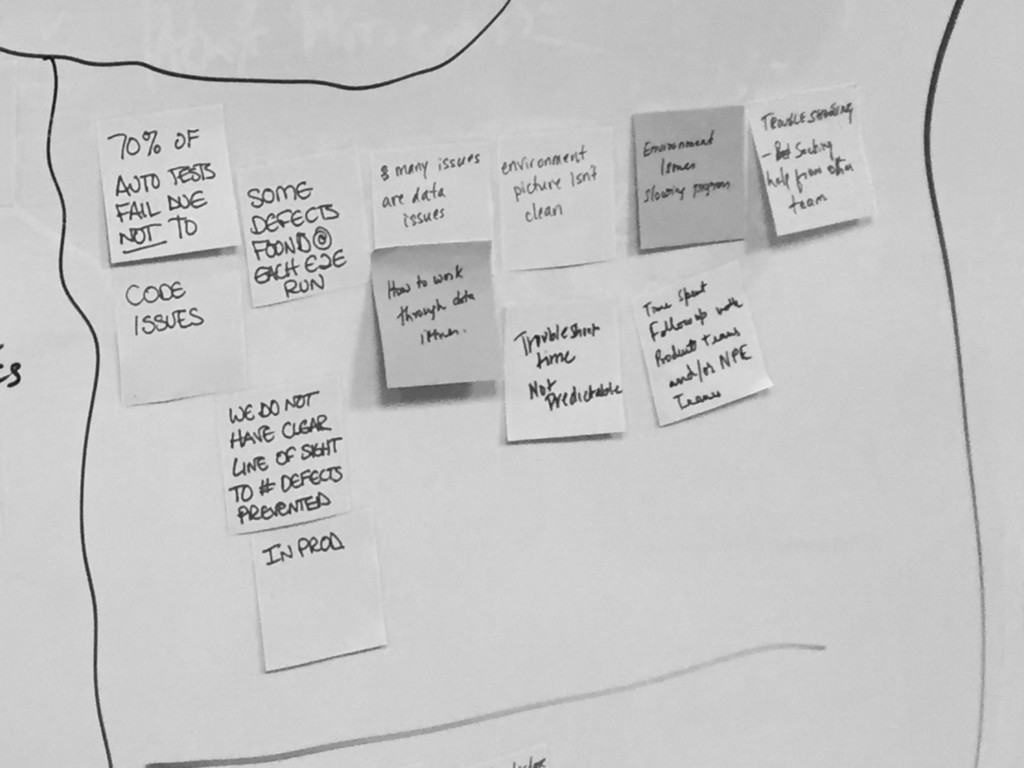 70% OF
AUTO TESTS
FAIL DUE
NOT TO
CODE
ISSUES
SOME
DEFECTS
FOUND @
EACH E2E
RUN
WE DO NOT
HAVE CLEAR
LINE OF SIGHT
TO # DEFECTS
PREVENTED
IN PROD
many issues
are data
issues
How to work
through data
issues.
environment
picture isn't
clean
Troubleshoot
time
Not
Predictable
Environment
Issues
slowing progress
Time Spent
Followup with
Product teams
and/or NPE
Teams
TROUBLESHOOTING
- Seeking
help from other
team